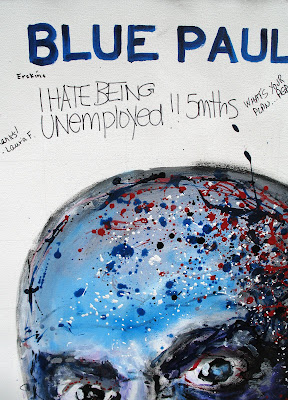 BLUE PAUL
Erskine
I HATE BEING
UNEMPloyed!! 5mths
WHAT'S YOUR
PLAN...
Laura F.